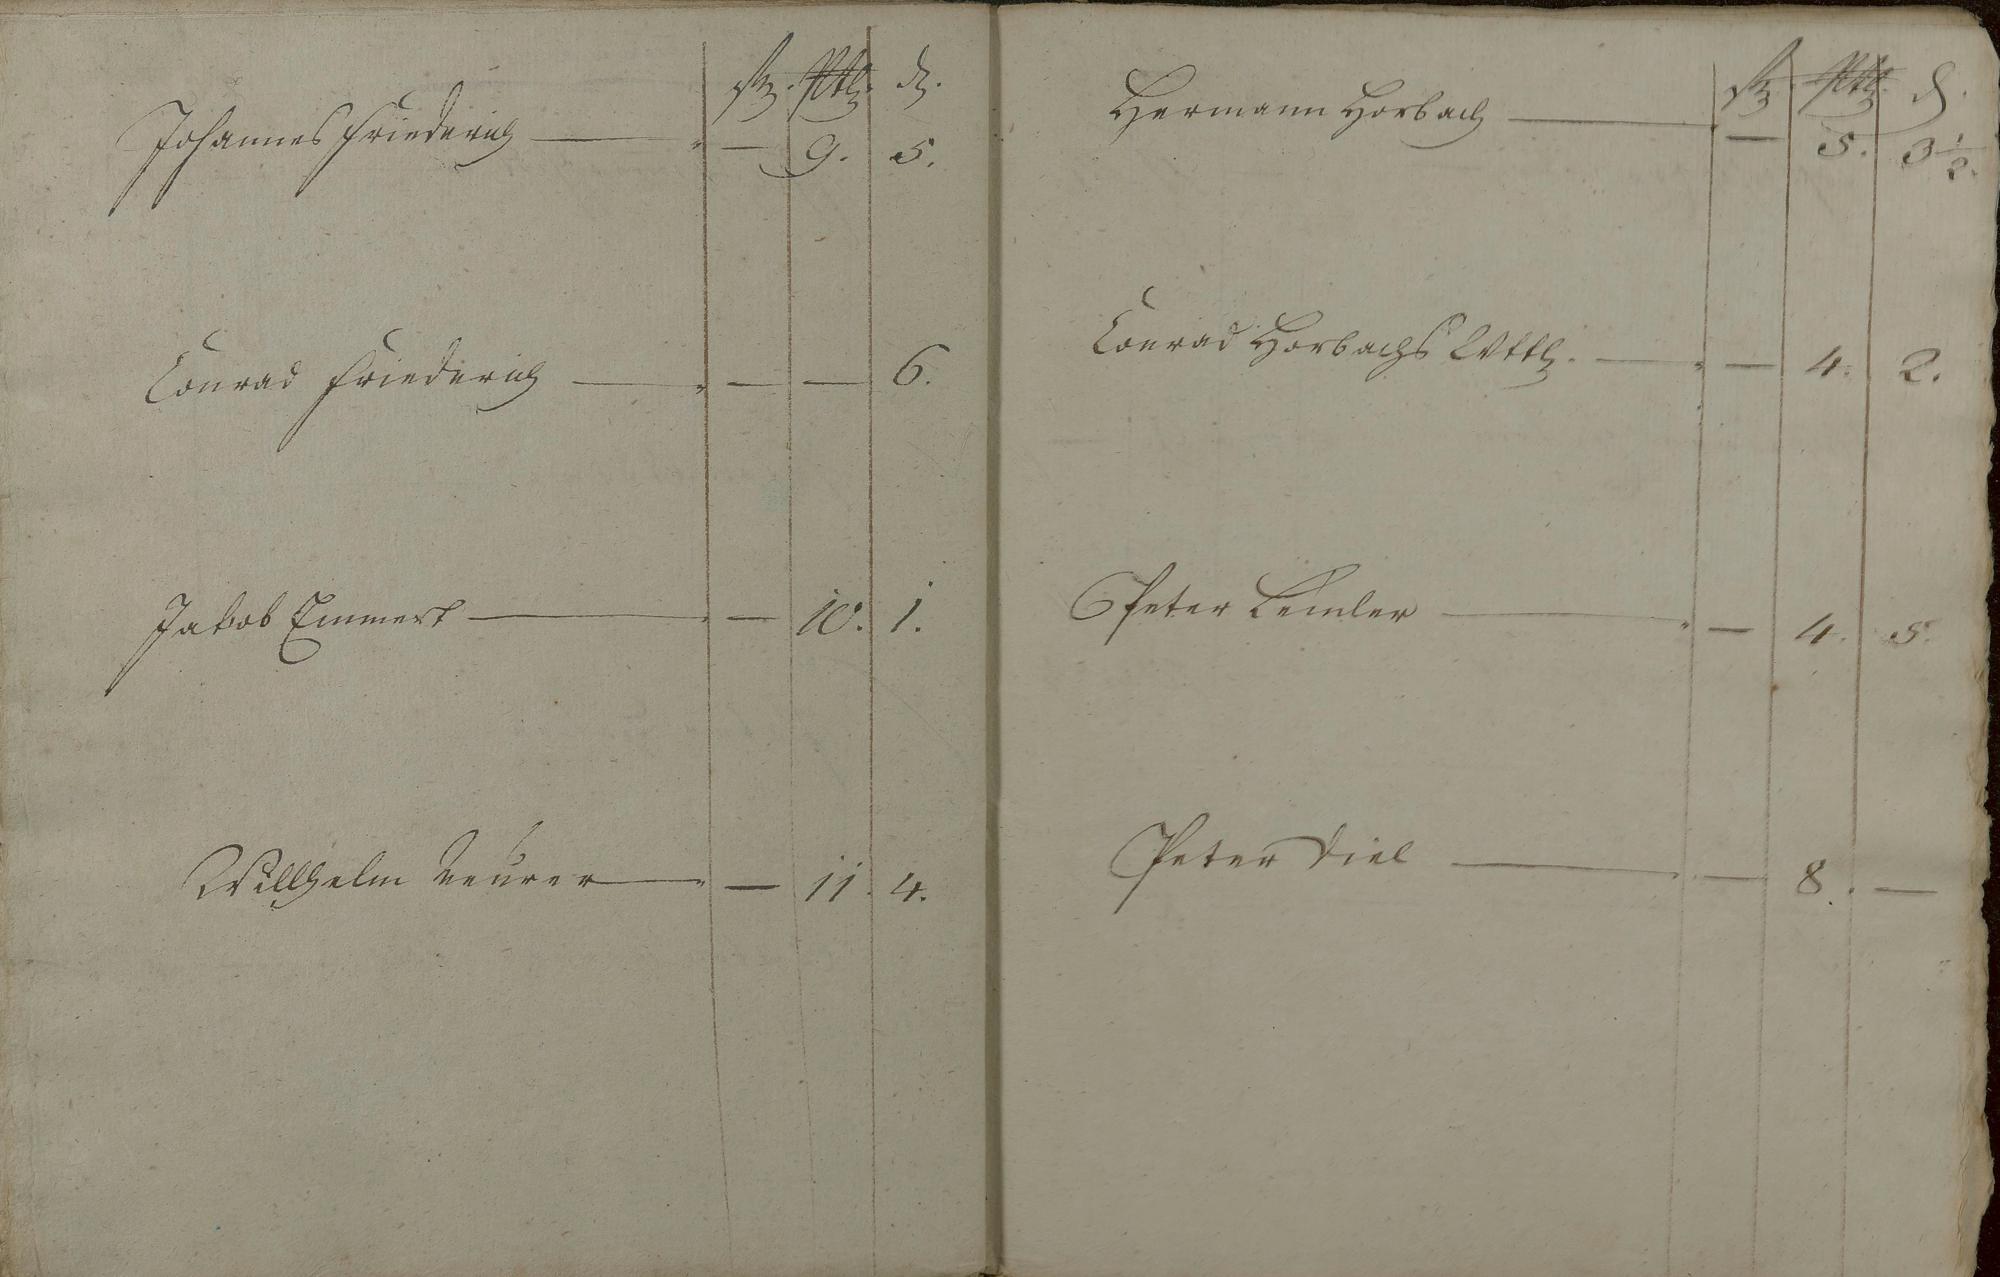 Johannes Friederich — — 9. 5.
Conrad Friederich — — — 6.
Jakob Emmert — — 10. 1.
Willhelm Neurer — — 11. 4.
Hermann Horbach — — 5. 3 1/2.
Conrad Horbachs Wttb. — — 4. 2.
Peter Lemler — — 4. 5.
Peter Diel — — 8. —